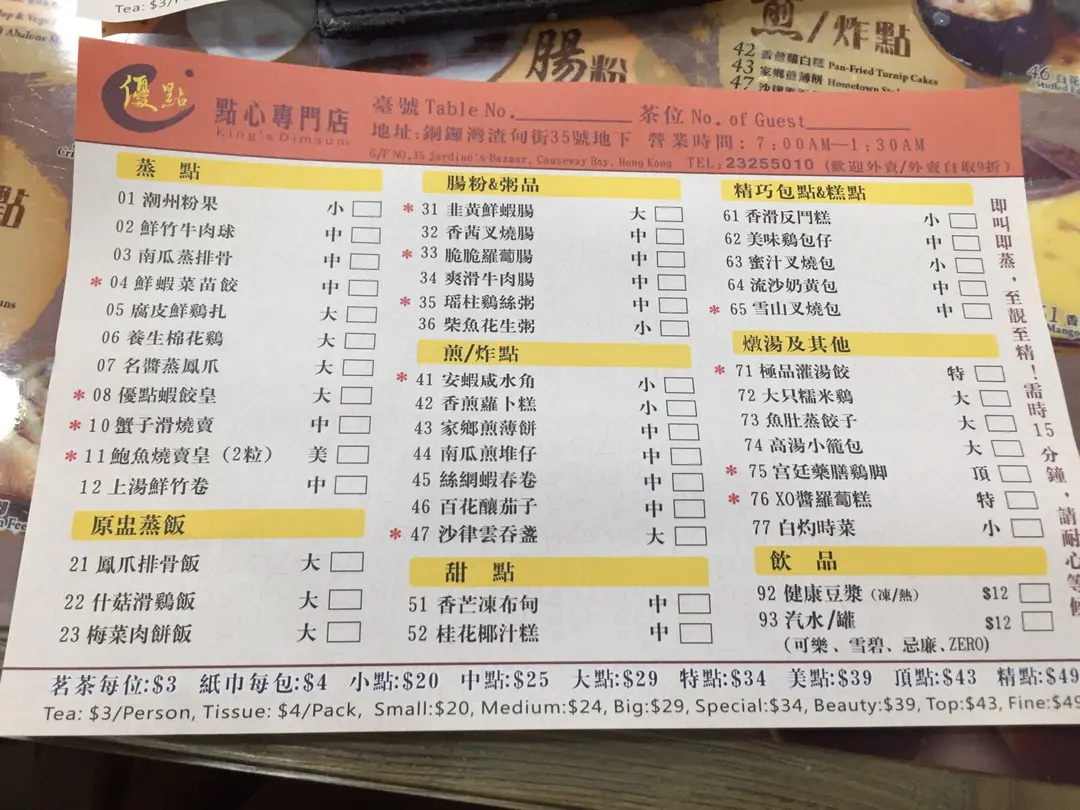 Tea: $3/P
腸粉
煎/炸點
42 香煎蘿白糕 Pan-Fried Turnip Cakes
43 家鄉煎薄餅 Hometown
47
46 百花
優點
點心專門店
King's Dimsum
臺號 Table No. 茶位 No. of Guest
地址:銅鑼灣渣甸街35號地下 營業時間:7:00AM—1:30AM
G/F NO,35 Jardine's Bazaar, Causeway Bay, Hong Kong TEL:23255010 (歡迎外賣/外賣自取9折)
蒸 點
01 潮州粉果 小
02 鮮竹牛肉球 中
03 南瓜蒸排骨 中
* 04 鮮蝦菜苗餃 中
05 腐皮鮮鷄扎 大
06 養生棉花鷄 大
07 名醬蒸鳳爪 大
* 08 優點蝦餃皇 大
* 10 蟹子滑燒賣 中
* 11 鮑魚燒賣皇(2粒) 美
12 上湯鮮竹卷 中
原盅蒸飯
21 鳳爪排骨飯 大
22 什菇滑鷄飯 大
23 梅菜肉餅飯 大
腸粉&粥品
* 31 韭黃鮮蝦腸 大
32 香茜叉燒腸 中
* 33 脆脆羅蔔腸 中
34 爽滑牛肉腸 中
* 35 瑶柱鷄絲粥 中
36 柴魚花生粥 小
煎/炸點
* 41 安蝦咸水角 小
42 香煎蘿卜糕 小
43 家鄉煎薄餅 中
44 南瓜煎堆仔 中
45 絲網蝦春卷 中
46 百花釀茄子 中
* 47 沙律雲吞盞 大
甜 點
51 香芒凍布甸 中
52 桂花椰汁糕 中
精巧包點&糕點
61 香滑反鬥糕 小
62 美味鷄包仔 中
63 蜜汁叉燒包 小
64 流沙奶黃包 中
* 65 雪山叉燒包 中
燉湯及其他
* 71 極品灌湯餃 特
72 大只糯米鷄 大
73 魚肚蒸餃子 大
74 高湯小籠包 大
* 75 宫廷藥膳鷄脚 頂
* 76 XO醬羅蔔糕 特
77 白灼時菜 小
飲 品
92 健康豆漿(凍/熱) $12
93 汽水/罐 $12
(可樂、雪碧、忌廉、ZERO)
即叫即蒸,至靚至精!需時15分鐘,請耐心等候
茗茶每位:$3 紙巾每包:$4 小點:$20 中點:$25 大點:$29 特點:$34 美點:$39 頂點:$43 精點:$49
Tea: $3/Person, Tissue: $4/Pack, Small:$20, Medium:$24, Big:$29, Special:$34, Beauty:$39, Top:$43, Fine:$49